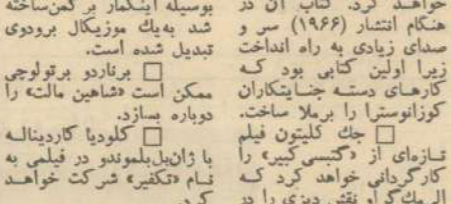 خواهد کرد. کتاب آن در
هنگام انتشار (۱۹۶۶) سر و
صدای زیادی به راه انداخت
زیرا اولین کتابی بود که
کارهای دسته جنایتکاران
کوزانوسترا را برملا ساخت.
□ جك کلیتون فیلم
تازه‌ای از «گتسبی کبیر» را
کارگردانی خواهد کرد که
الی مك‌گراو نقش دیزی را در
بوسیله اینگمار برگمن ساخته
شد به‌یك موزیکال برودوی
تبدیل شده است.
□ برناردو برتولوچی
ممکن است «شاهین مالت» را
دوباره بسازد.
□ کلودیا کاردیناله
با ژان‌پل‌بلموندو در فیلمی به
نام «تکفیر» شرکت خواهد
کرد.